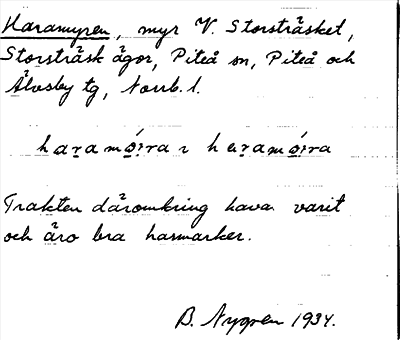 Haramyren, myr V. Storsträsket,
Storsträsk ägor, Piteå sn, Piteå och
Älvsby tg, Norrb. l.
Trakten däromkring hava varit
och äro bra harmarker.
B. Nygren 1934.